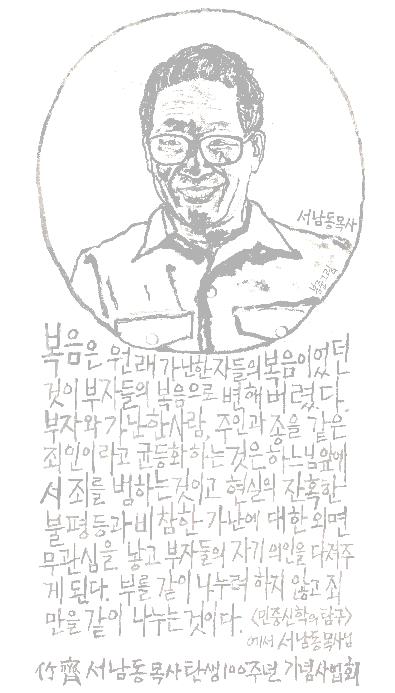 서남동목사
붓글그림
복음은 원래 가난한자들의 복음이었던
것이 부자들의 복음으로 변해버렸다.
부자와 가난한사람, 주인과 종을 같은
죄인이라고 균등화하는것은 하느님앞에
서 죄를 범하는것이고 현실의 잔혹한
불평등과 비참한 가난에 대한 외면
무관심을 낳고 부자들의 자기 의인을 다져주
게 된다. 부를 같이 나누려 하지 않고 죄
만을 같이 나누는것이다. <민중신학의 탐구>
에서 서남동목사님
竹齋 서남동목사탄생100주년 기념사업회